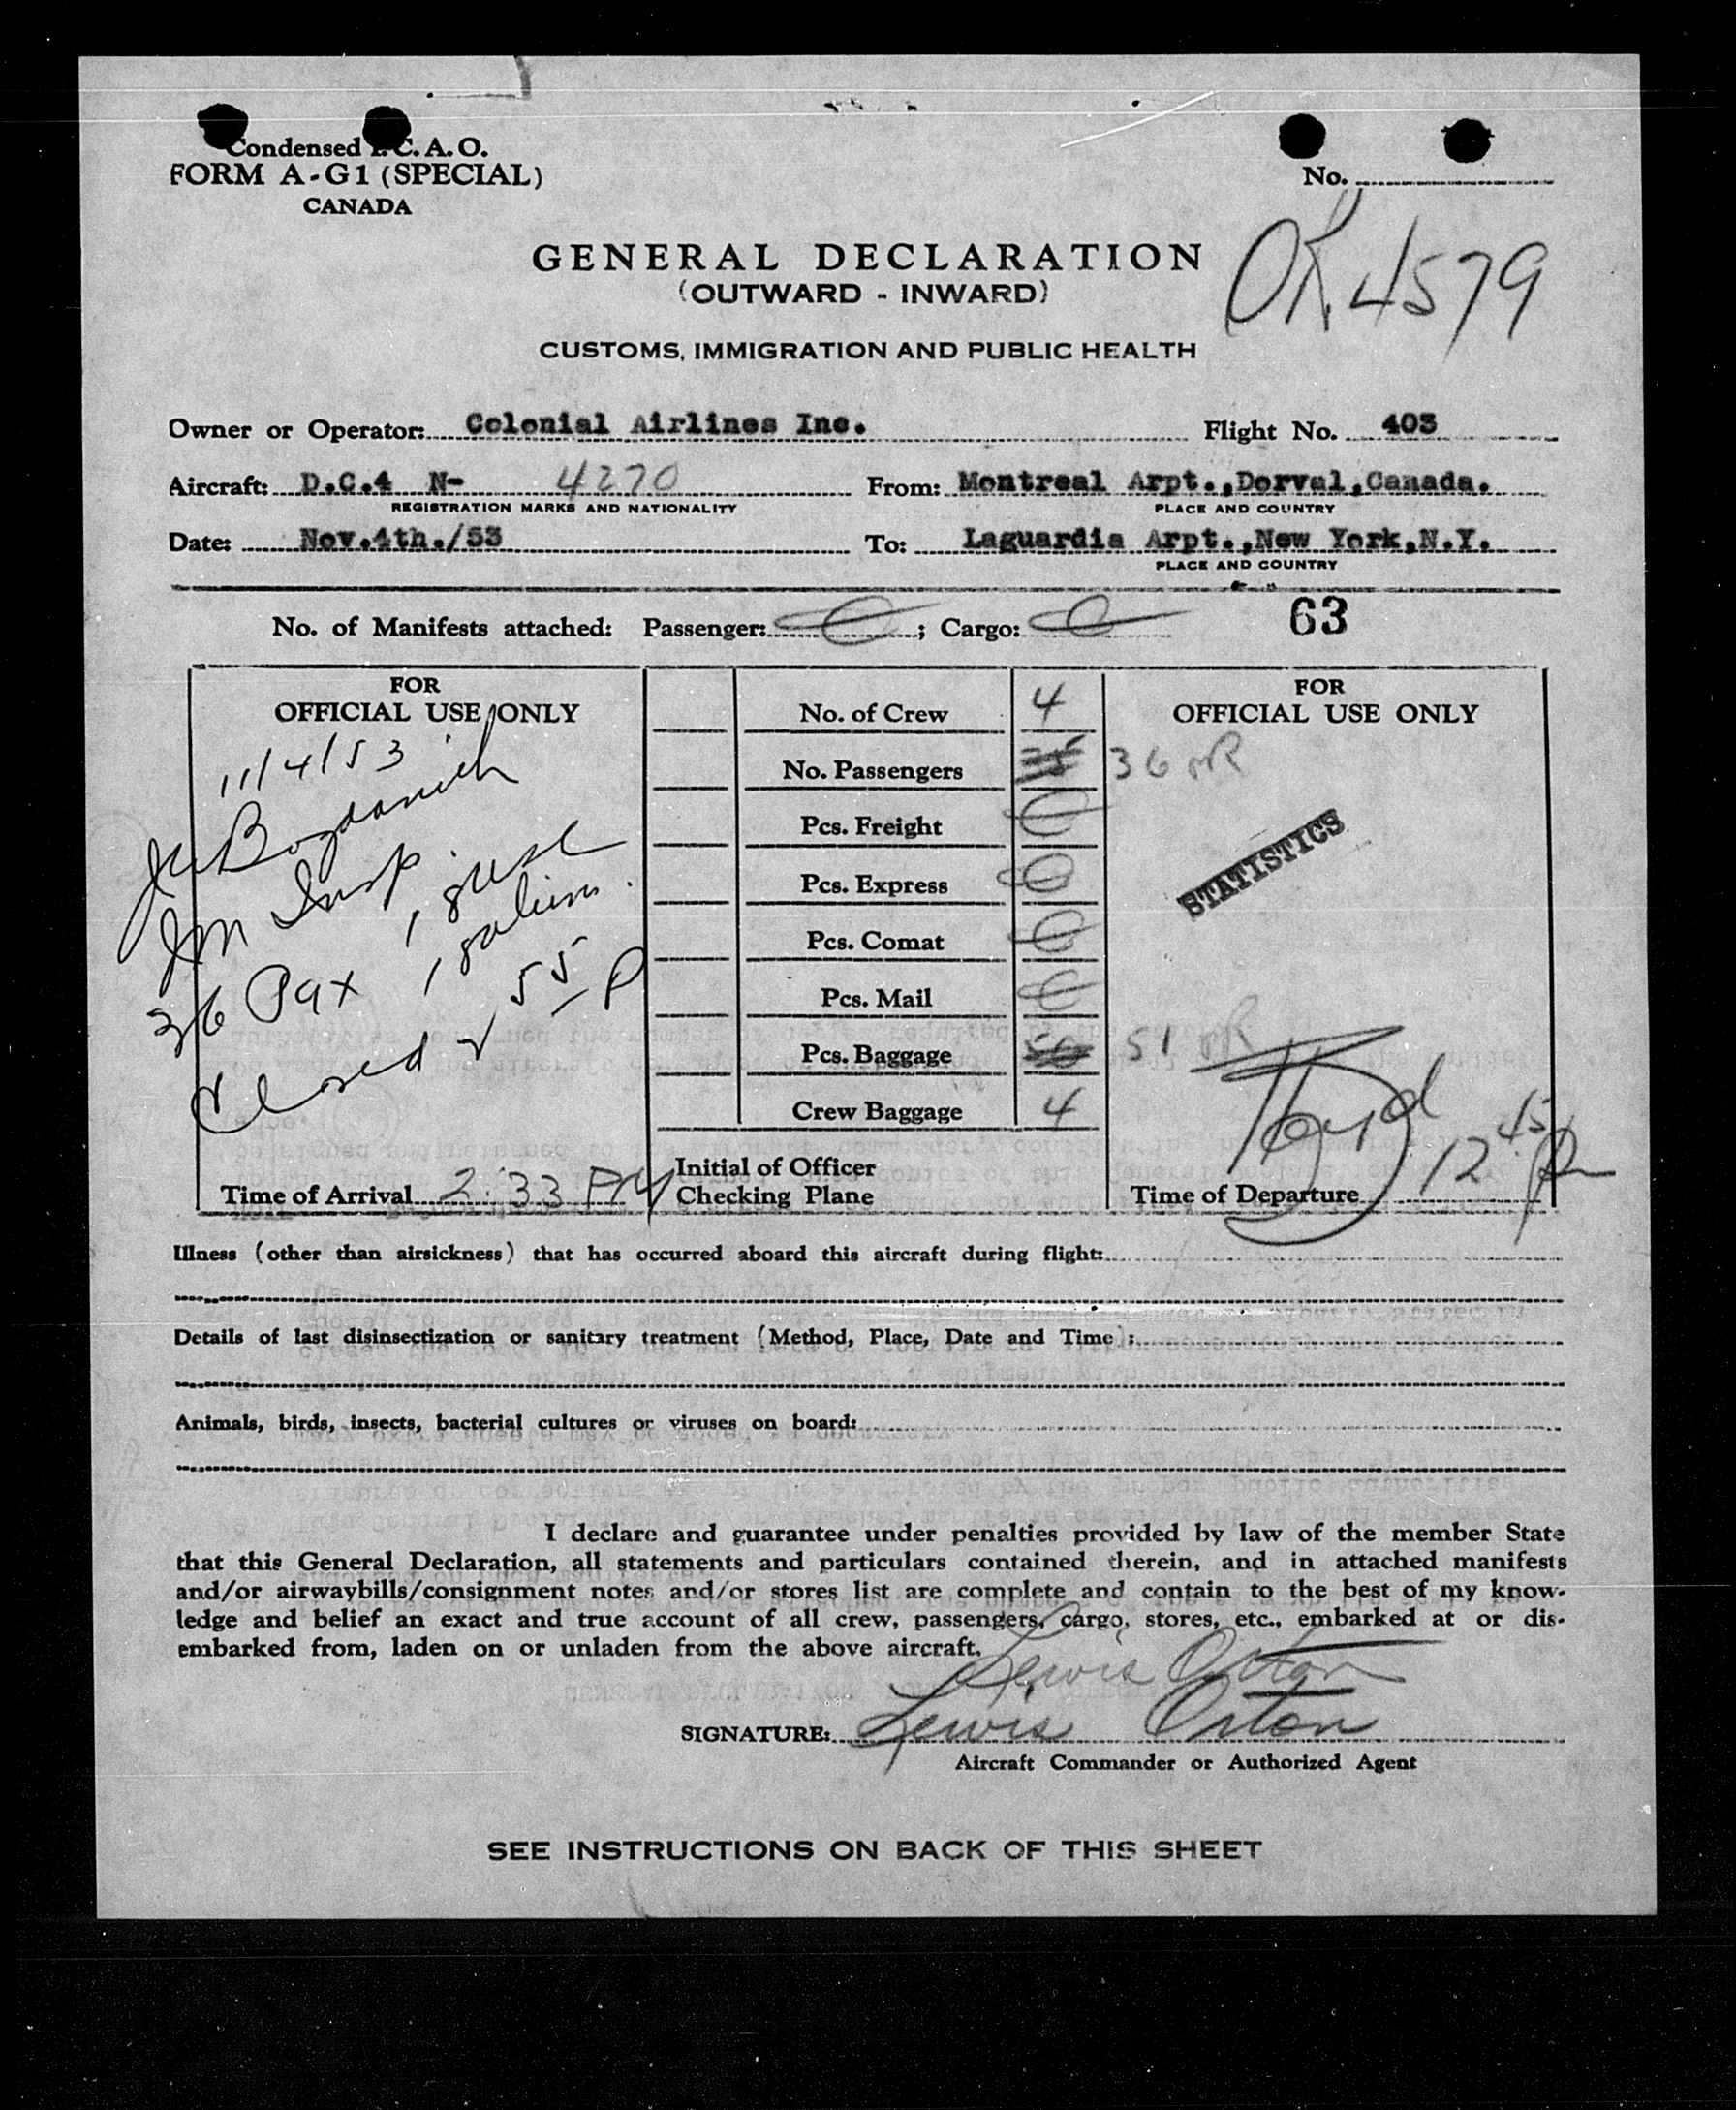 Condensed I.C.A.O.
FORM A-G1 (SPECIAL)
CANADA
No.
OK 4579
GENERAL DECLARATION
(OUTWARD - INWARD)
CUSTOMS, IMMIGRATION AND PUBLIC HEALTH
Owner or Operator: Colonial Airlines Inc. Flight No. 403
Aircraft: D.C.4 N- 4270 From: Montreal Arpt.,Dorval,Canada.
REGISTRATION MARKS AND NATIONALITY PLACE AND COUNTRY
Date: Nov.4th./53 To: Laguardia Arpt.,New York,N.Y.
PLACE AND COUNTRY
63
No. of Manifests attached: Passenger: ; Cargo:
FOR
OFFICIAL USE ONLY
11/4/53
Bogdanich
Im Insp.
36 Pax
Closed 2 55 P
Time of Arrival 2:33 PM
No. of Crew 4
No. Passengers 35 36
Pcs. Freight
Pcs. Express
Pcs. Comat
Pcs. Mail
Pcs. Baggage 50 51
Crew Baggage 4
Initial of Officer
Checking Plane
FOR
OFFICIAL USE ONLY
STATISTICS
Time of Departure 12 45
Illness (other than airsickness) that has occurred aboard this aircraft during flight:
Details of last disinsectization or sanitary treatment (Method, Place, Date and Time):
Animals, birds, insects, bacterial cultures or viruses on board:
I declare and guarantee under penalties provided by law of the member State
that this General Declaration, all statements and particulars contained therein, and in attached manifests
and/or airwaybills/consignment notes and/or stores list are complete and contain to the best of my know-
ledge and belief an exact and true account of all crew, passengers, cargo, stores, etc., embarked at or dis-
embarked from, laden on or unladen from the above aircraft.
Lewis Orton
SIGNATURE: Lewis Orton
Aircraft Commander or Authorized Agent
SEE INSTRUCTIONS ON BACK OF THIS SHEET